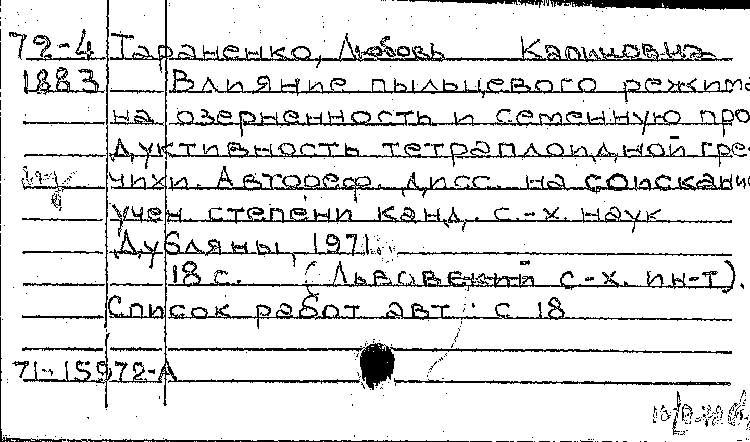 72-4 Тараненко, Любовь Калиновна
1883 Влияние пыльцевого режима
на озерненность и семенную про
дуктивность тетраплоидной гре
чихи. Автореф. дисс. на соискание
учен. степени канд. с.-х. наук
Дубляны, 1971.
18 с. (Львовский с-х. ин-т).
Список работ авт.: с 18
71-15972-А